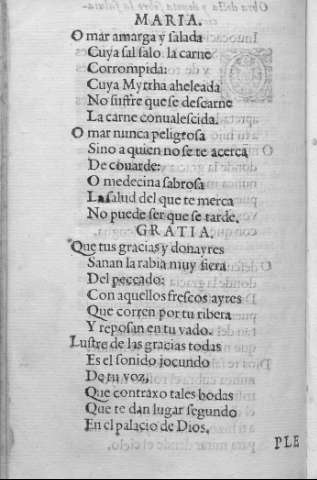 MARIA.
O mar amarga y salada
Cuya sal salo la carne
Corrompida:
Cuya Myrrha aheleada
No sufre que se descarne
La carne conualescida.
O mar nunca peligrosa
Sino a quien no se te acerca
De couarde:
O medecina sabrosa
La salud del que te merca
No puede ser que se tarde.
GRATIA.
Que tus gracias y donayres
Sanan la rabia muy fiera
Del peccado:
Con aquellos frescos ayres
Que corren por tu ribera
Y reposan en tu vado.
Lustre de las gracias todas
Es el sonido jocundo
De tu voz,
Que contraxo tales bodas
Que te dan lugar segundo
En el palacio de Dios.
PLE